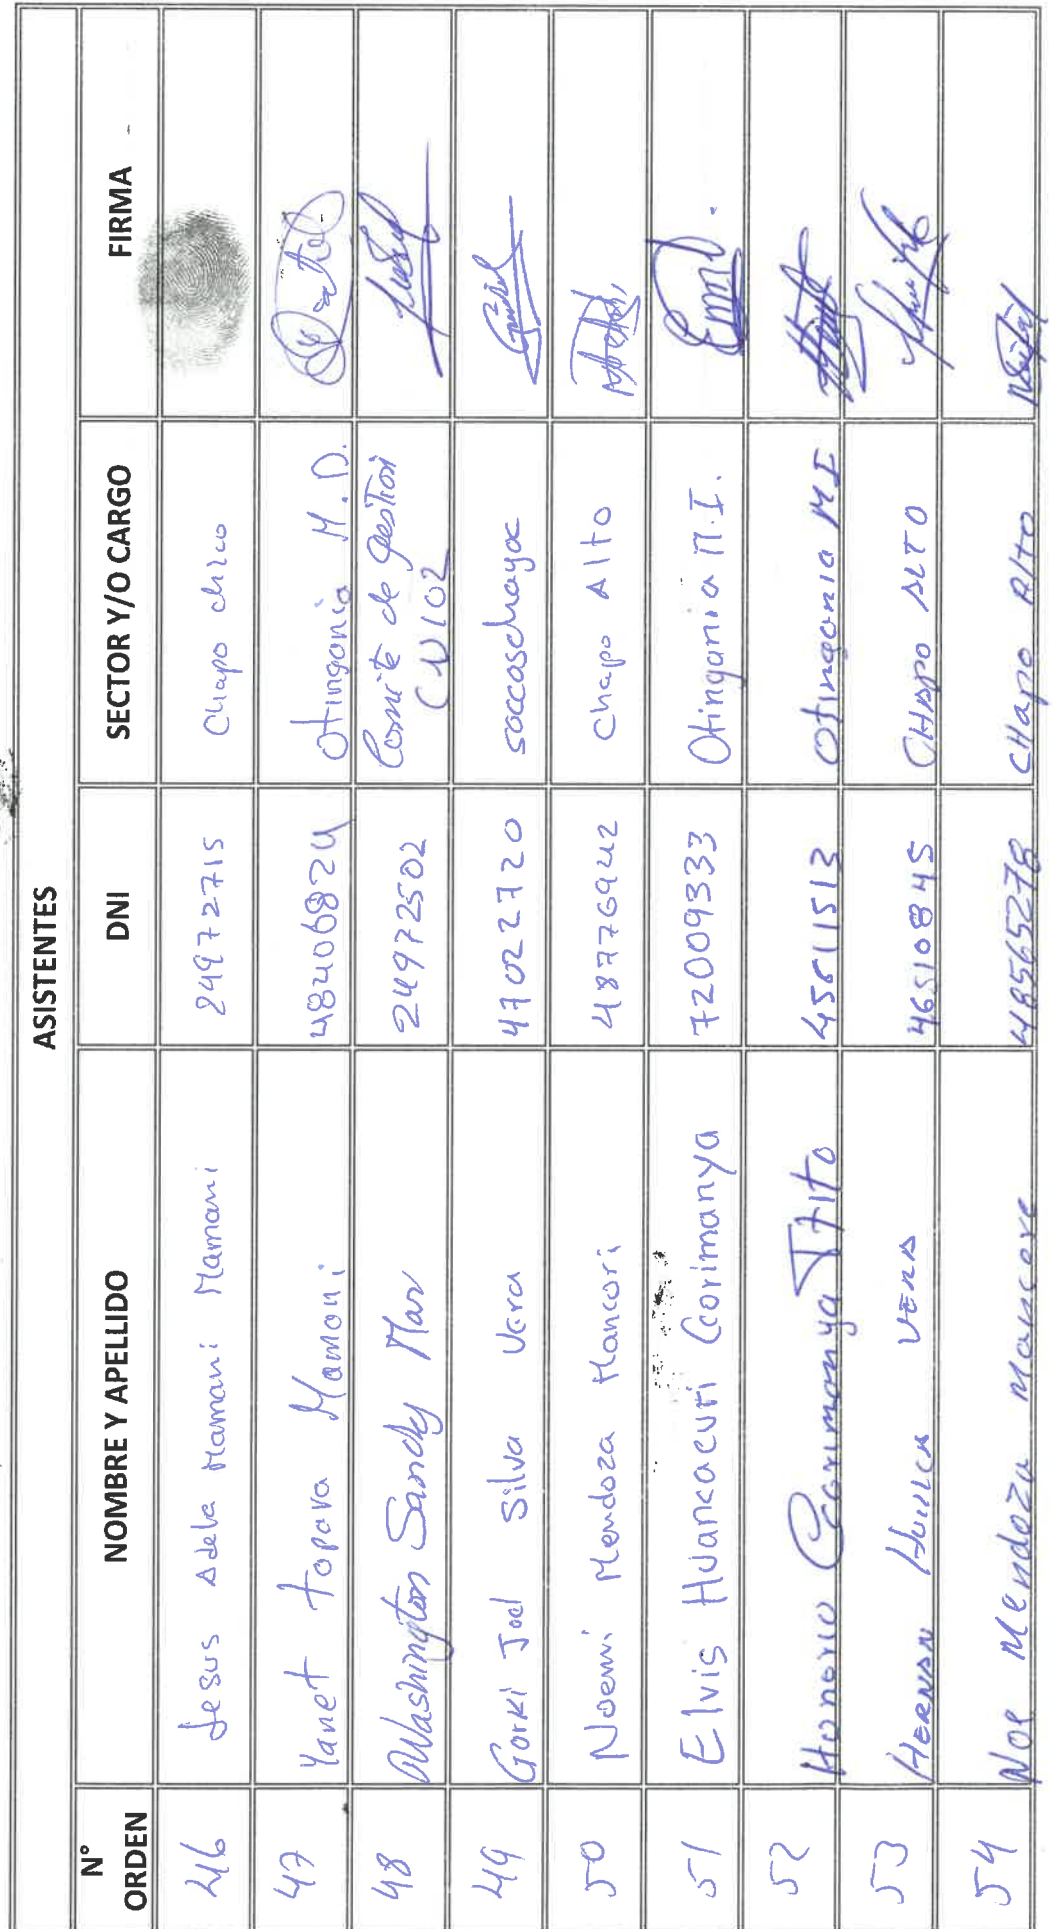 ASISTENTES
N° ORDEN NOMBRE Y APELLIDO DNI SECTOR Y/O CARGO FIRMA
46 Jesus Adela Mamani Mamani 24972715 Chapo chico
47 Yanet Topara Mamani 48406824 Otingania M.D.
48 Washington Sandy Mar 24972502 Comité de gestion
49 Gorki Joel Silva Vera 47022720 soccoschayoc
50 Noemi Mendoza Mancori 48776942 Chapo Alto
51 Elvis Huancacuri Ccorimanya 72009333 Otingania M.I.
52 Honorio Ccorimanya Tito 45611513 Otingania M I
53 HERNAN HUILLCA VERA 46510845 CHAPO ALTO
54 Noe Mendoza Mancore 48565278 CHapo Alto